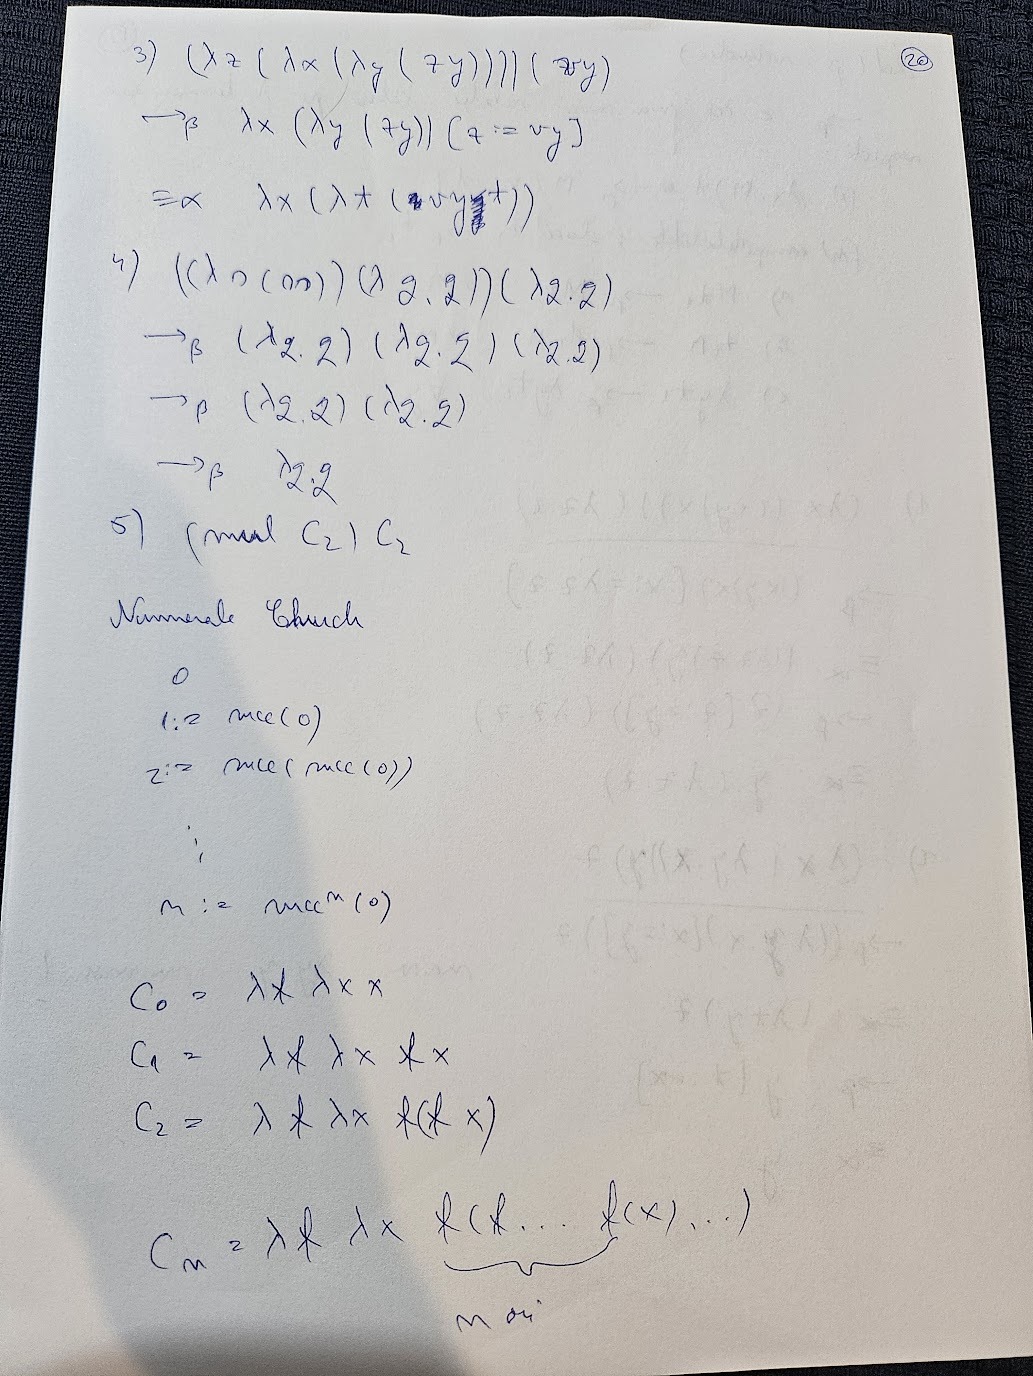 20
3) (λz (λx (λy (zy)))) (vy)
→β λx (λy (zy)) [z := vy]
≡α λx (λt (vyt))
4) ((λn (nn)) (λ2.2)) (λ2.2)
→β (λ2.2) (λ2.2) (λ2.2)
→β (λ2.2) (λ2.2)
→β λ2.2
5) (mul C₂) C₂
Numerale Church
0
1:= succ(0)
2:= succ(succ(0))
⋮
n := succⁿ(0)
C₀ = λf λx x
C₁ = λf λx f x
C₂ = λf λx f(f x)
Cₙ = λf λx f(f... f(x)...)
n ori